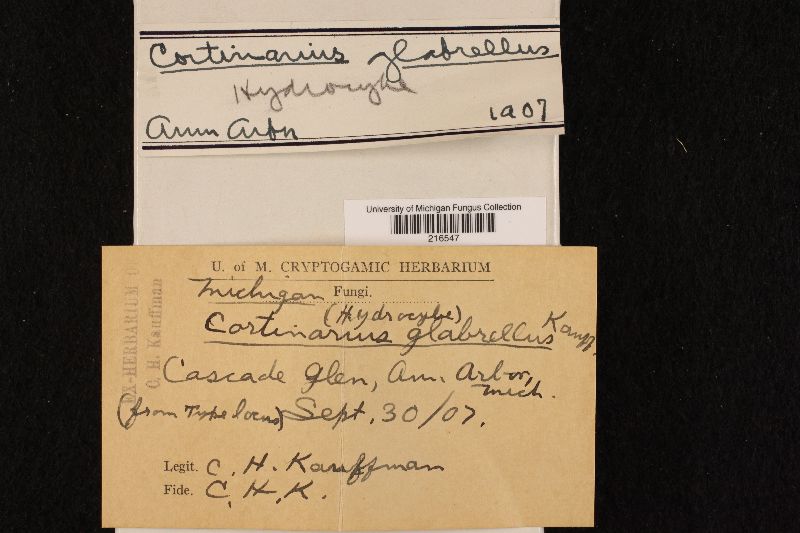 Cortinarius glabrellus
Hydrocybe
Ann Arbor
1907
University of Michigan Fungus Collection
216547
U. of M. CRYPTOGAMIC HERBARIUM
Michigan Fungi.
(Hydrocybe)
Cortinarius glabrellus Kauff.
Cascade Glen, Ann. Arbor,
Mich.
(from Type locus) Sept. 30/07.
Legit. C. H. Kauffman
Fide. C. H. K.
EX-HERBARIUM O
C. H. Kauffman